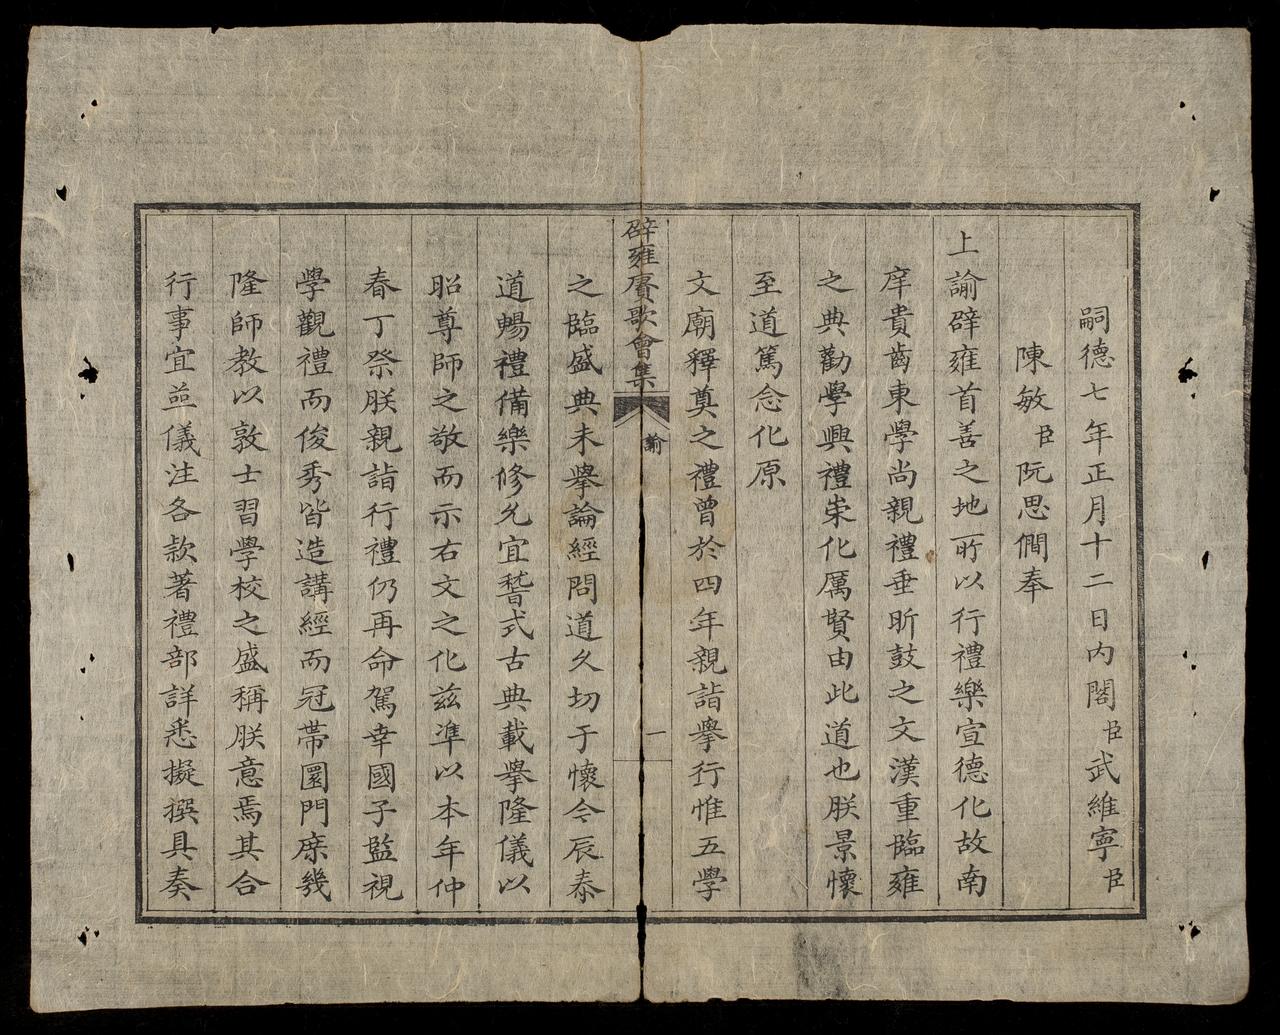 嗣德七年正月十二日內閣臣武維寧臣
陳敏臣阮思僩奉
上諭辟雍首善之地所以行禮樂宣德化故南
庠貴齒東學尚親禮垂昕鼓之文漢重臨雍
之典勸學興禮崇化厲賢由此道也朕景懷
至道篤念化原
文廟釋奠之禮曾於四年親詣舉行惟五學
辟雍賡歌會集
諭
一
之臨盛典未舉論經問道久切于懷今辰泰
道暢禮備樂修允宜稽式古典載舉隆儀以
昭尊師之敬而示右文之化茲準以本年仲
春丁祭朕親詣行禮仍再命駕幸國子監視
學觀禮而俊秀皆造講經而冠帶圜門庶幾
隆師教以敦士習學校之盛稱朕意焉其合
行事宜並儀注各款著禮部詳悉擬撰具奏